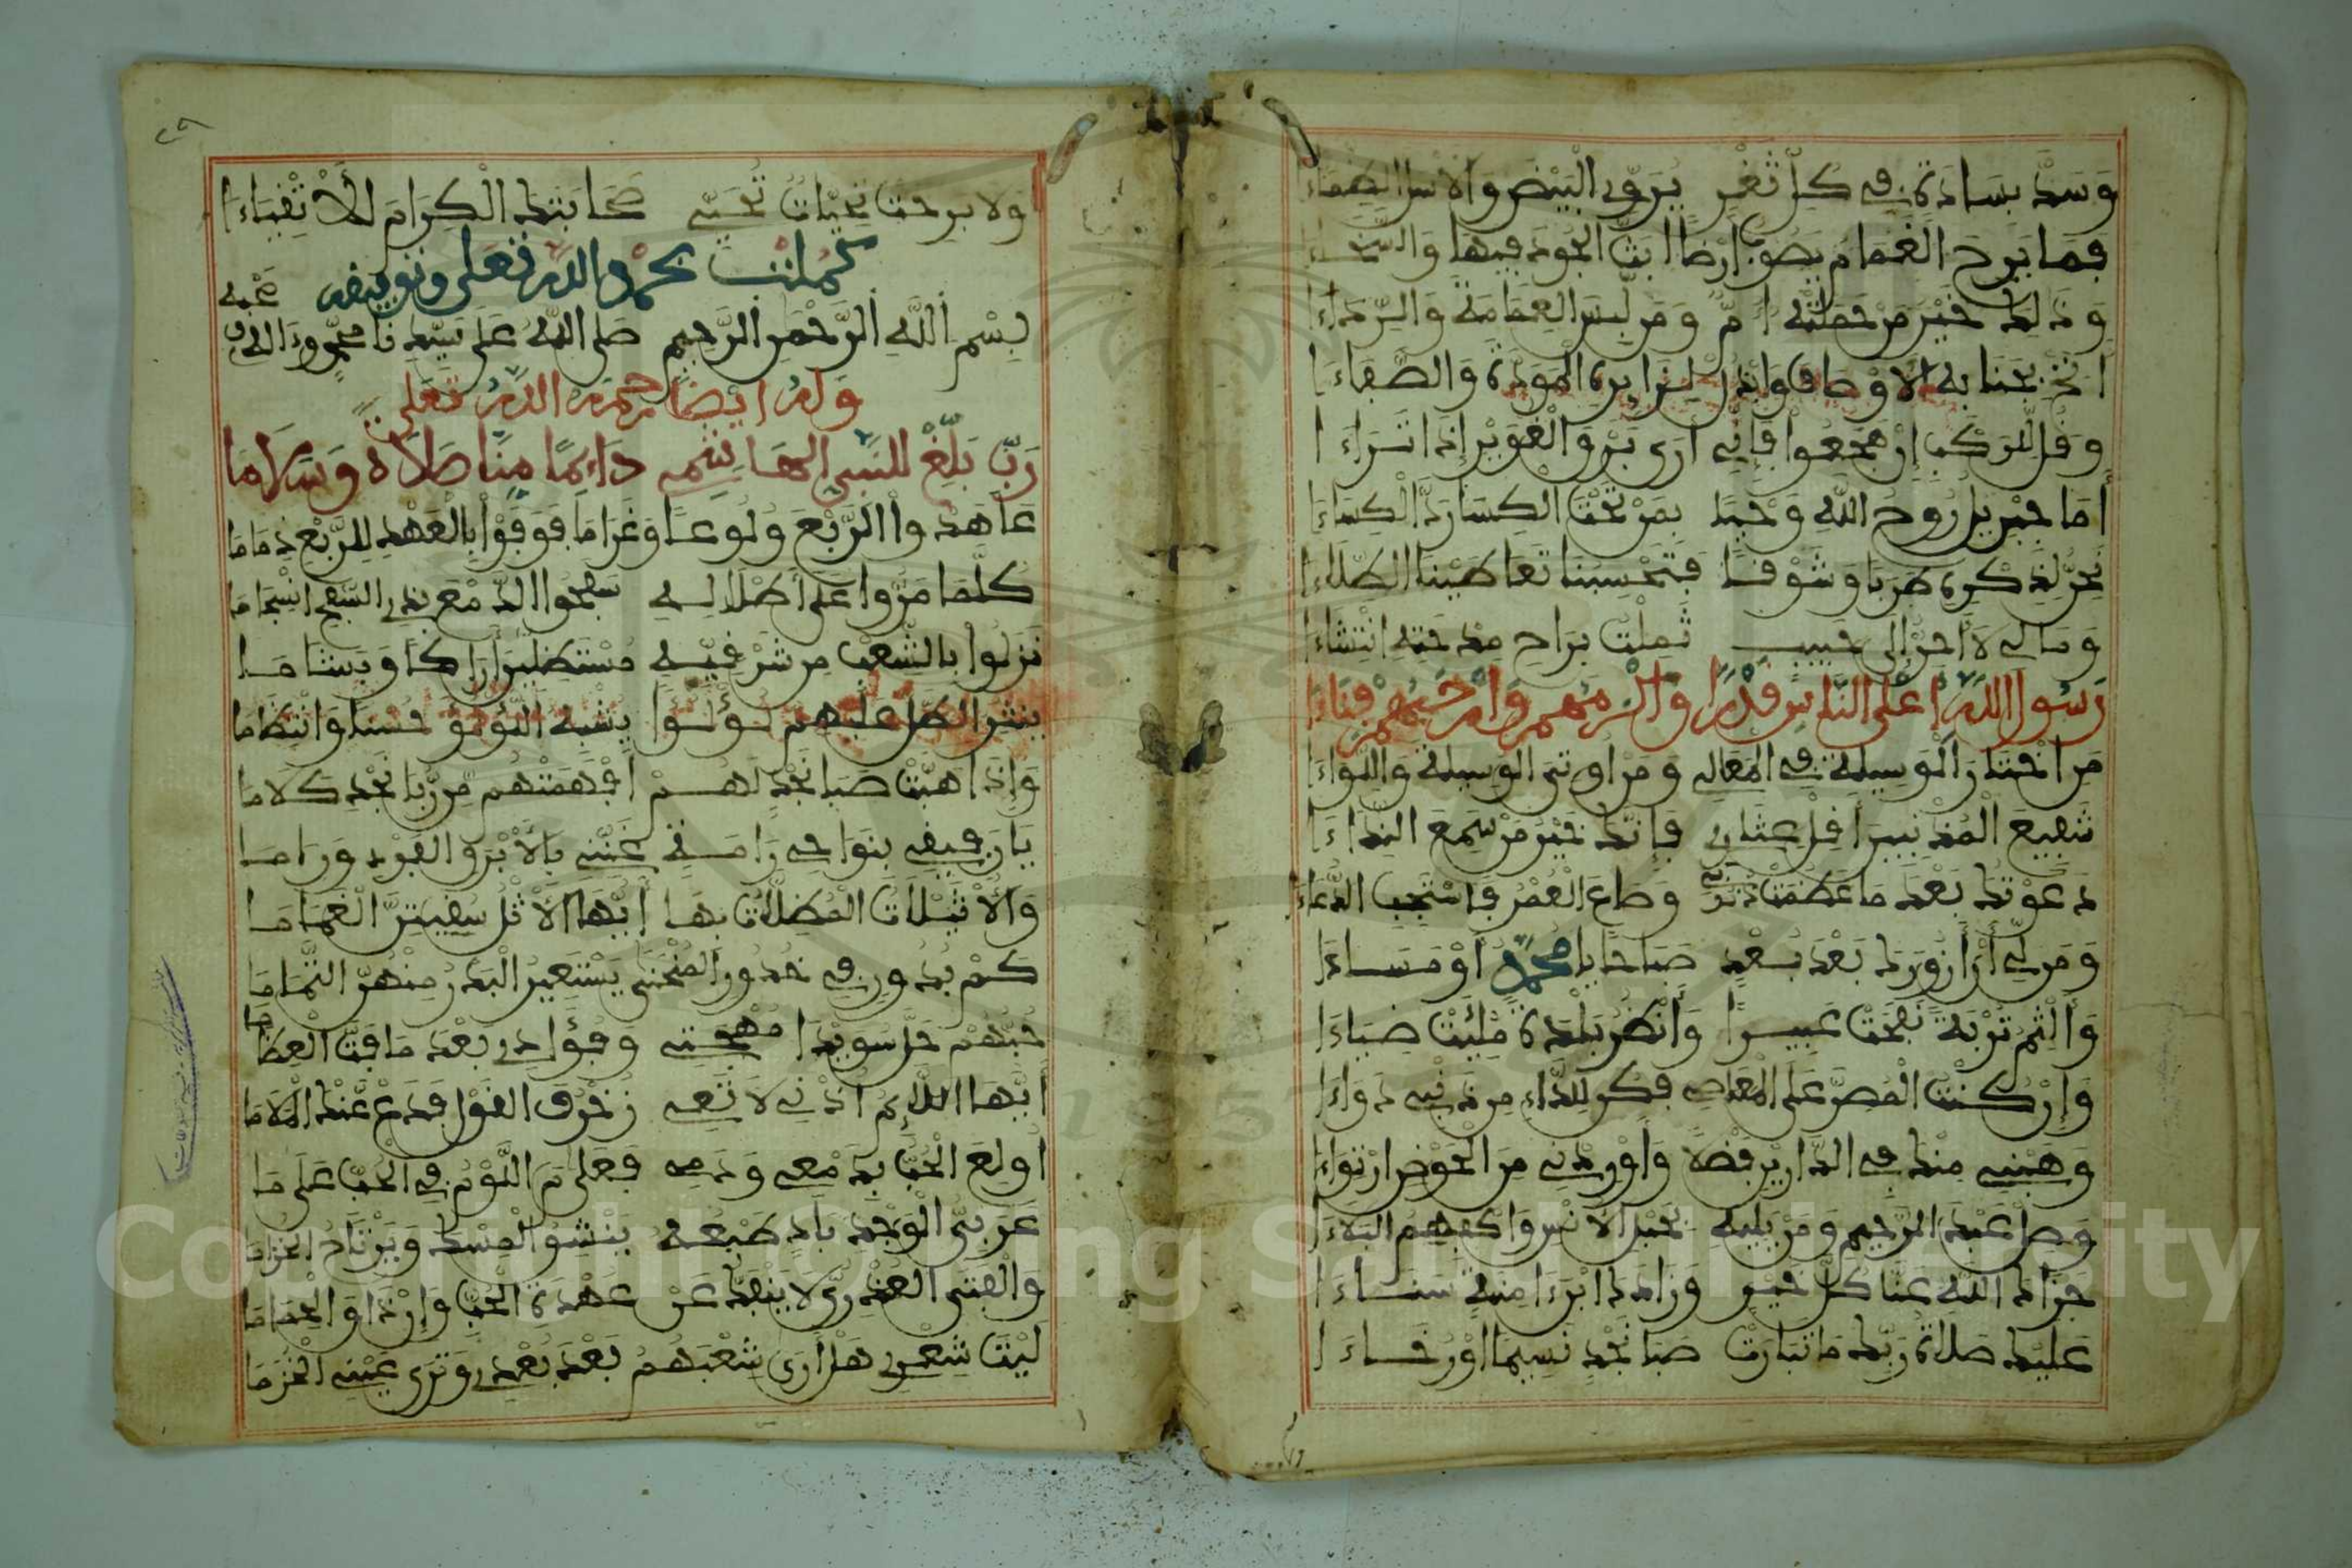 وَسَدَّ بسَادَةٍ في كلّ ثغْرٍ يروّي البيْض والأسل الظِّمَاءَا
فما برح الغمام يصوب أرضًا ابثّ الجود فيها والسَّخاءَا
وذلك خير من حملته أمٌّ ومن لبس العمامة والرّداءَا
انخ بجنابه الاوطان واندرْ لزايره المودة والصّفاءَا
وقل للركب إن هجعوا فإني أرى برق الغوير إذا تراءَا
أما جبريل روح الله وحيًا بمن تحت الكسا ردّ الكساءَا
نحنّ لذكره طربا وشوقًا فتحسبنا تعاطينا الطّلاءَا
وما لي لا أحنّ إلى حبيب ثملت براح مدحته انتشاءَا
رسول الله أعلى الناس قدرًا وأكرمهم وأرحبهم فناءَا
من اختار الوسيلة في المعالي ومن اوتي الوسيلة واللواءَا
شفيع المذنبين أقل عثاري فإنك خير من سمع النداءَا
دعوتك بعد ما عظمت ذنوبي وضاع العمر فاستجب الدّعاءَا
ومن لي أن أزورك بعد بعدٍ صباحا يا محمد أو مساءَا
وألثم تربة نفحت عبيرًا وأنظر بلدة ملئت ضياءَا
وإن كنت المصرّ على المعاصي فكن للدّاء من ذنبي دواءَا
وهبني منك في الدارين فضلا وأوردني من الحوض ارتواءَا
وصل عبد الرحيم ومن يليه بخير الانس واكفهم البلاءَا
جزاك الله عنا كلّ خير وزادك يا ابن ءامنة سناءَا
عليك صلاة ربّك ما تبارت صبا نجد نسيما اوْ رخاءَا
ولا برحت تحيّات تحيّي صحابتك الكرام الأتقياءَا
كملت بحمد الله تعلى وتوفيقه
بسم الله الرحمن الرحيم صلى الله على سيدنا محمد وءاله وصحبه
وله أيضا رحمه الله تعلى
ربّ بلّغ للنبي الهاشمي دائما منّا صلاة وسلاما
عاهدوا الرّبع ولوعا وغراما فوفوا بالعهد للرّبع ذماما
كلّما مرّوا على أطلاله سفحوا الدّمع بذي السفح انسجاما
نزلوا بالشعب من شرقيّه مستظلين أراكا وبشاما
ينثر الطل عليهم لؤلؤا يشبه اللؤلؤ حسنا وانتظاما
وإذا هبّت صبا نجد لهم افهمتهم من ربا نجد كلاما
يا رفيقي بنواحي رامة غنّني بالأبرق الفرد وراما
والأثيلات المظلات بها أيّها الأثل سقيتنّ الغماما
كم بدور في خدور المنحنى يستعير البدر منهن التماما
حبّهم حل سويدا مهجتي وفؤادي بعد ما فتّ العظاما
أيّها اللائم أذني لا تعي زخرف القول فدع عنك الملاما
أولع الحبّ بدمعي ودمي فعلى م اللوم في الحبّ على ما
عربيّ الوجد بادٍ طبعه ينشق المسك ويرتاد الخزاما
والفتى العذريّ لا ينفكّ عن عهدة الحبّ وإن ذاق الحماما
ليت شعري هل أرى شعبهم بعد بُعدي وترى عيني الخزما